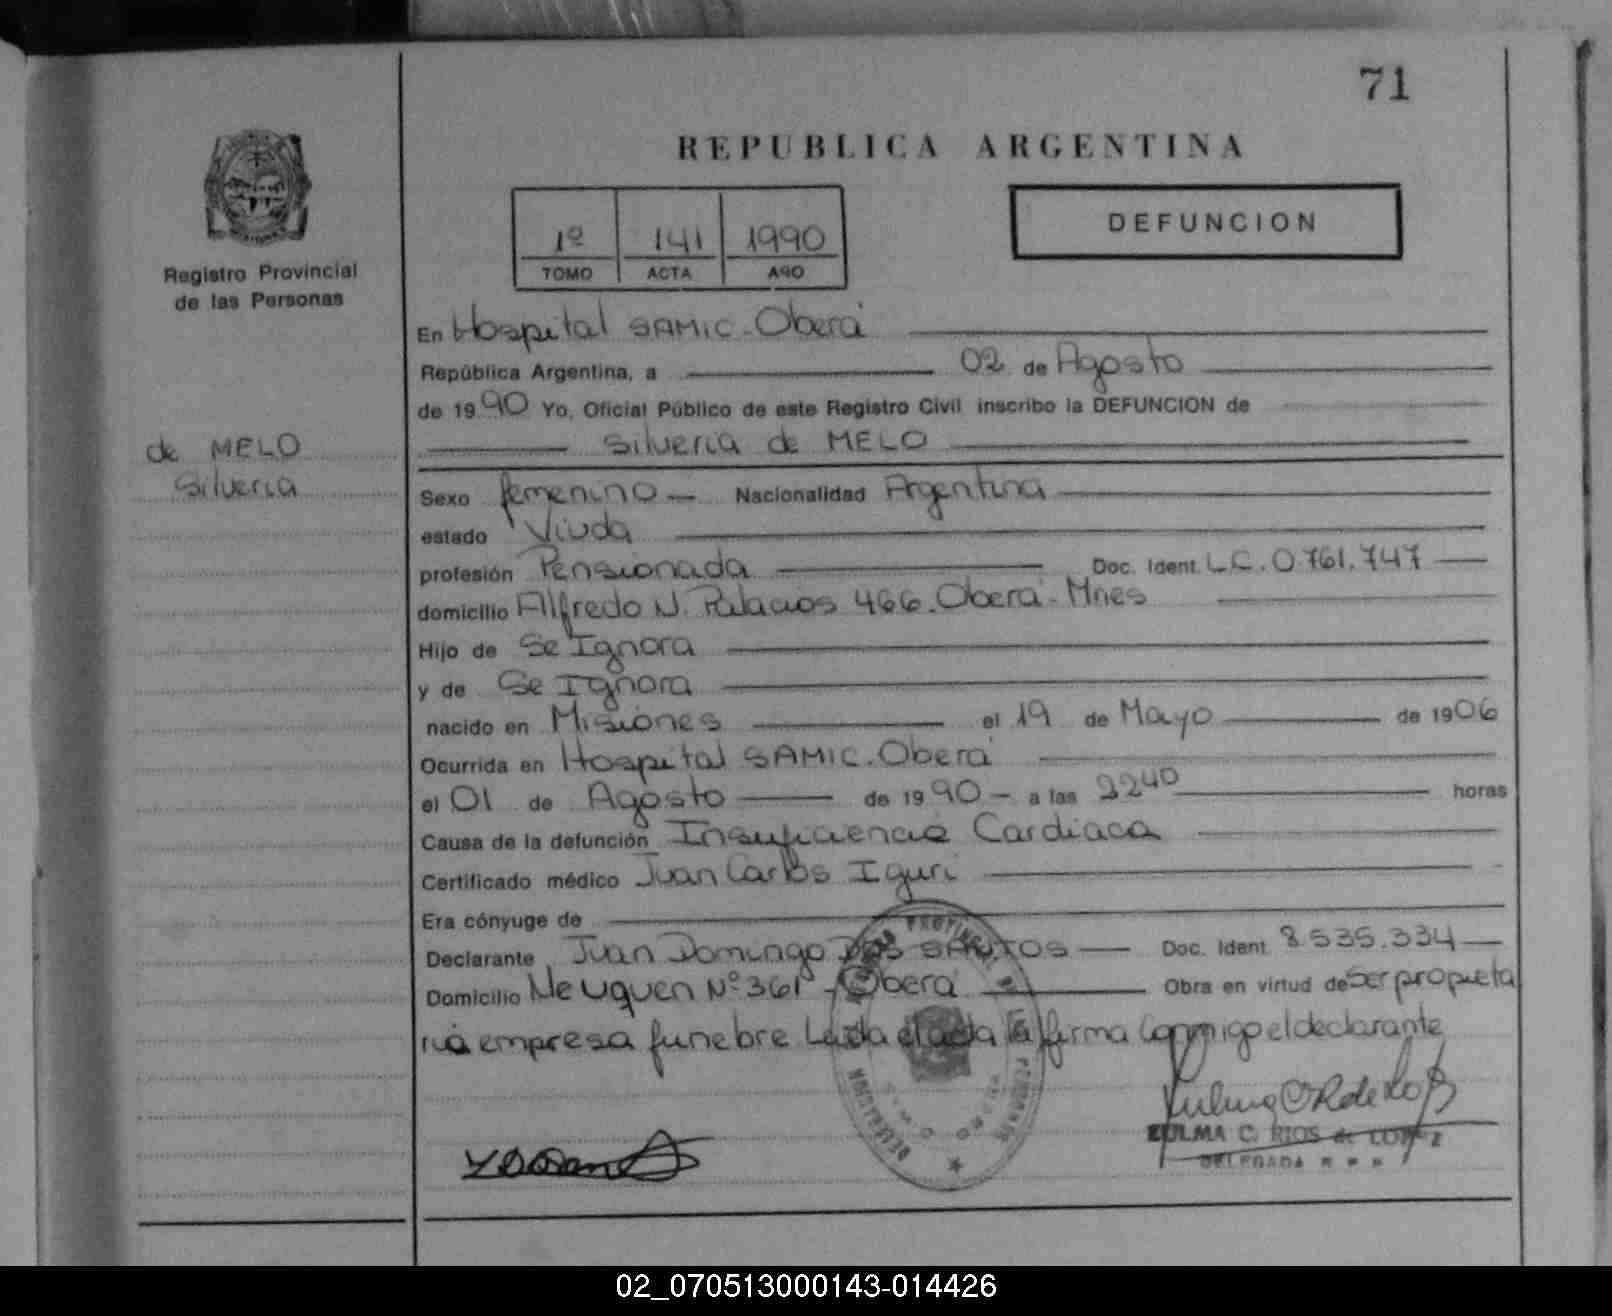 71
REPUBLICA ARGENTINA
1º 141 1990
TOMO ACTA AÑO
DEFUNCION
Registro Provincial
de las Personas
de MELO
Silveria
En Hospital SAMIC - Oberá
República Argentina, a 02 de Agosto
de 1990 Yo, Oficial Público de este Registro Civil inscribo la DEFUNCION de
Silveria de MELO
Sexo femenino - Nacionalidad Argentina
estado Viuda
profesión Pensionada Doc. Ident. L.C. 0.761.747
domicilio Alfredo N. Palacios 466. Oberá - Mnes
Hijo de Se Ignora
y de Se Ignora
nacido en Misiones el 19 de Mayo de 1906
Ocurrida en Hospital SAMIC. Oberá
el 01 de Agosto de 1990 - a las 2240 horas
Causa de la defunción Insuficiencia Cardíaca
Certificado médico Juan Carlos Iguri
Era cónyuge de
Declarante Juan Domingo DOS SANTOS Doc. Ident. 8.535.334
Domicilio Neuquen Nº 361 - Oberá Obra en virtud de Ser propieta
rio empresa funebre Leida el acta la firma Conmigo el declarante
ZULMA C. RIOS de LOPEZ
DELEGADA
02_070513000143-014426